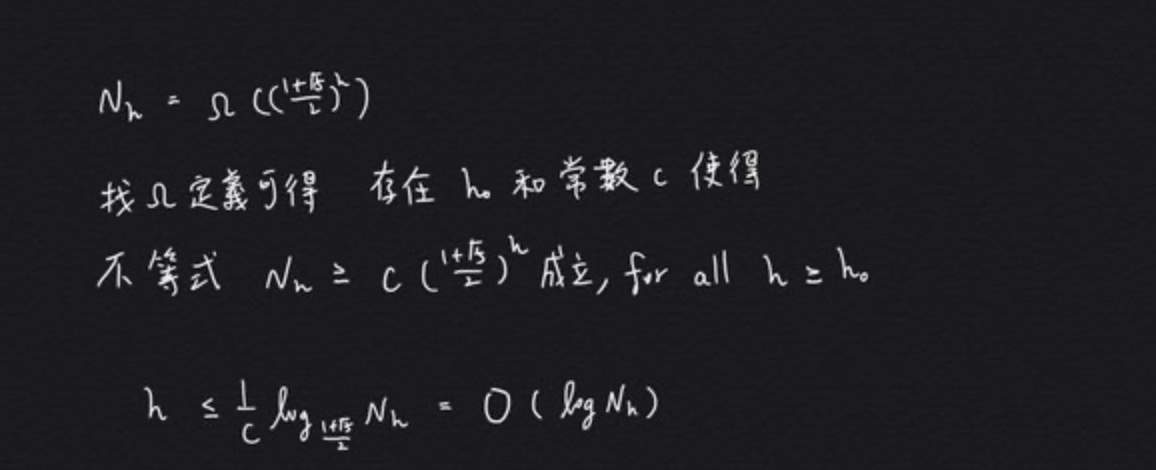 N_h = Ω((\frac{1+√5}{2})^h)
找Ω定義可得 存在 h₀ 和常數 c 使得
不等式 N_h ≥ c(\frac{1+√5}{2})^h 成立, for all h ≥ h₀
h ≤ \frac{1}{c} log_{\frac{1+√5}{2}} N_h = O(log N_h)